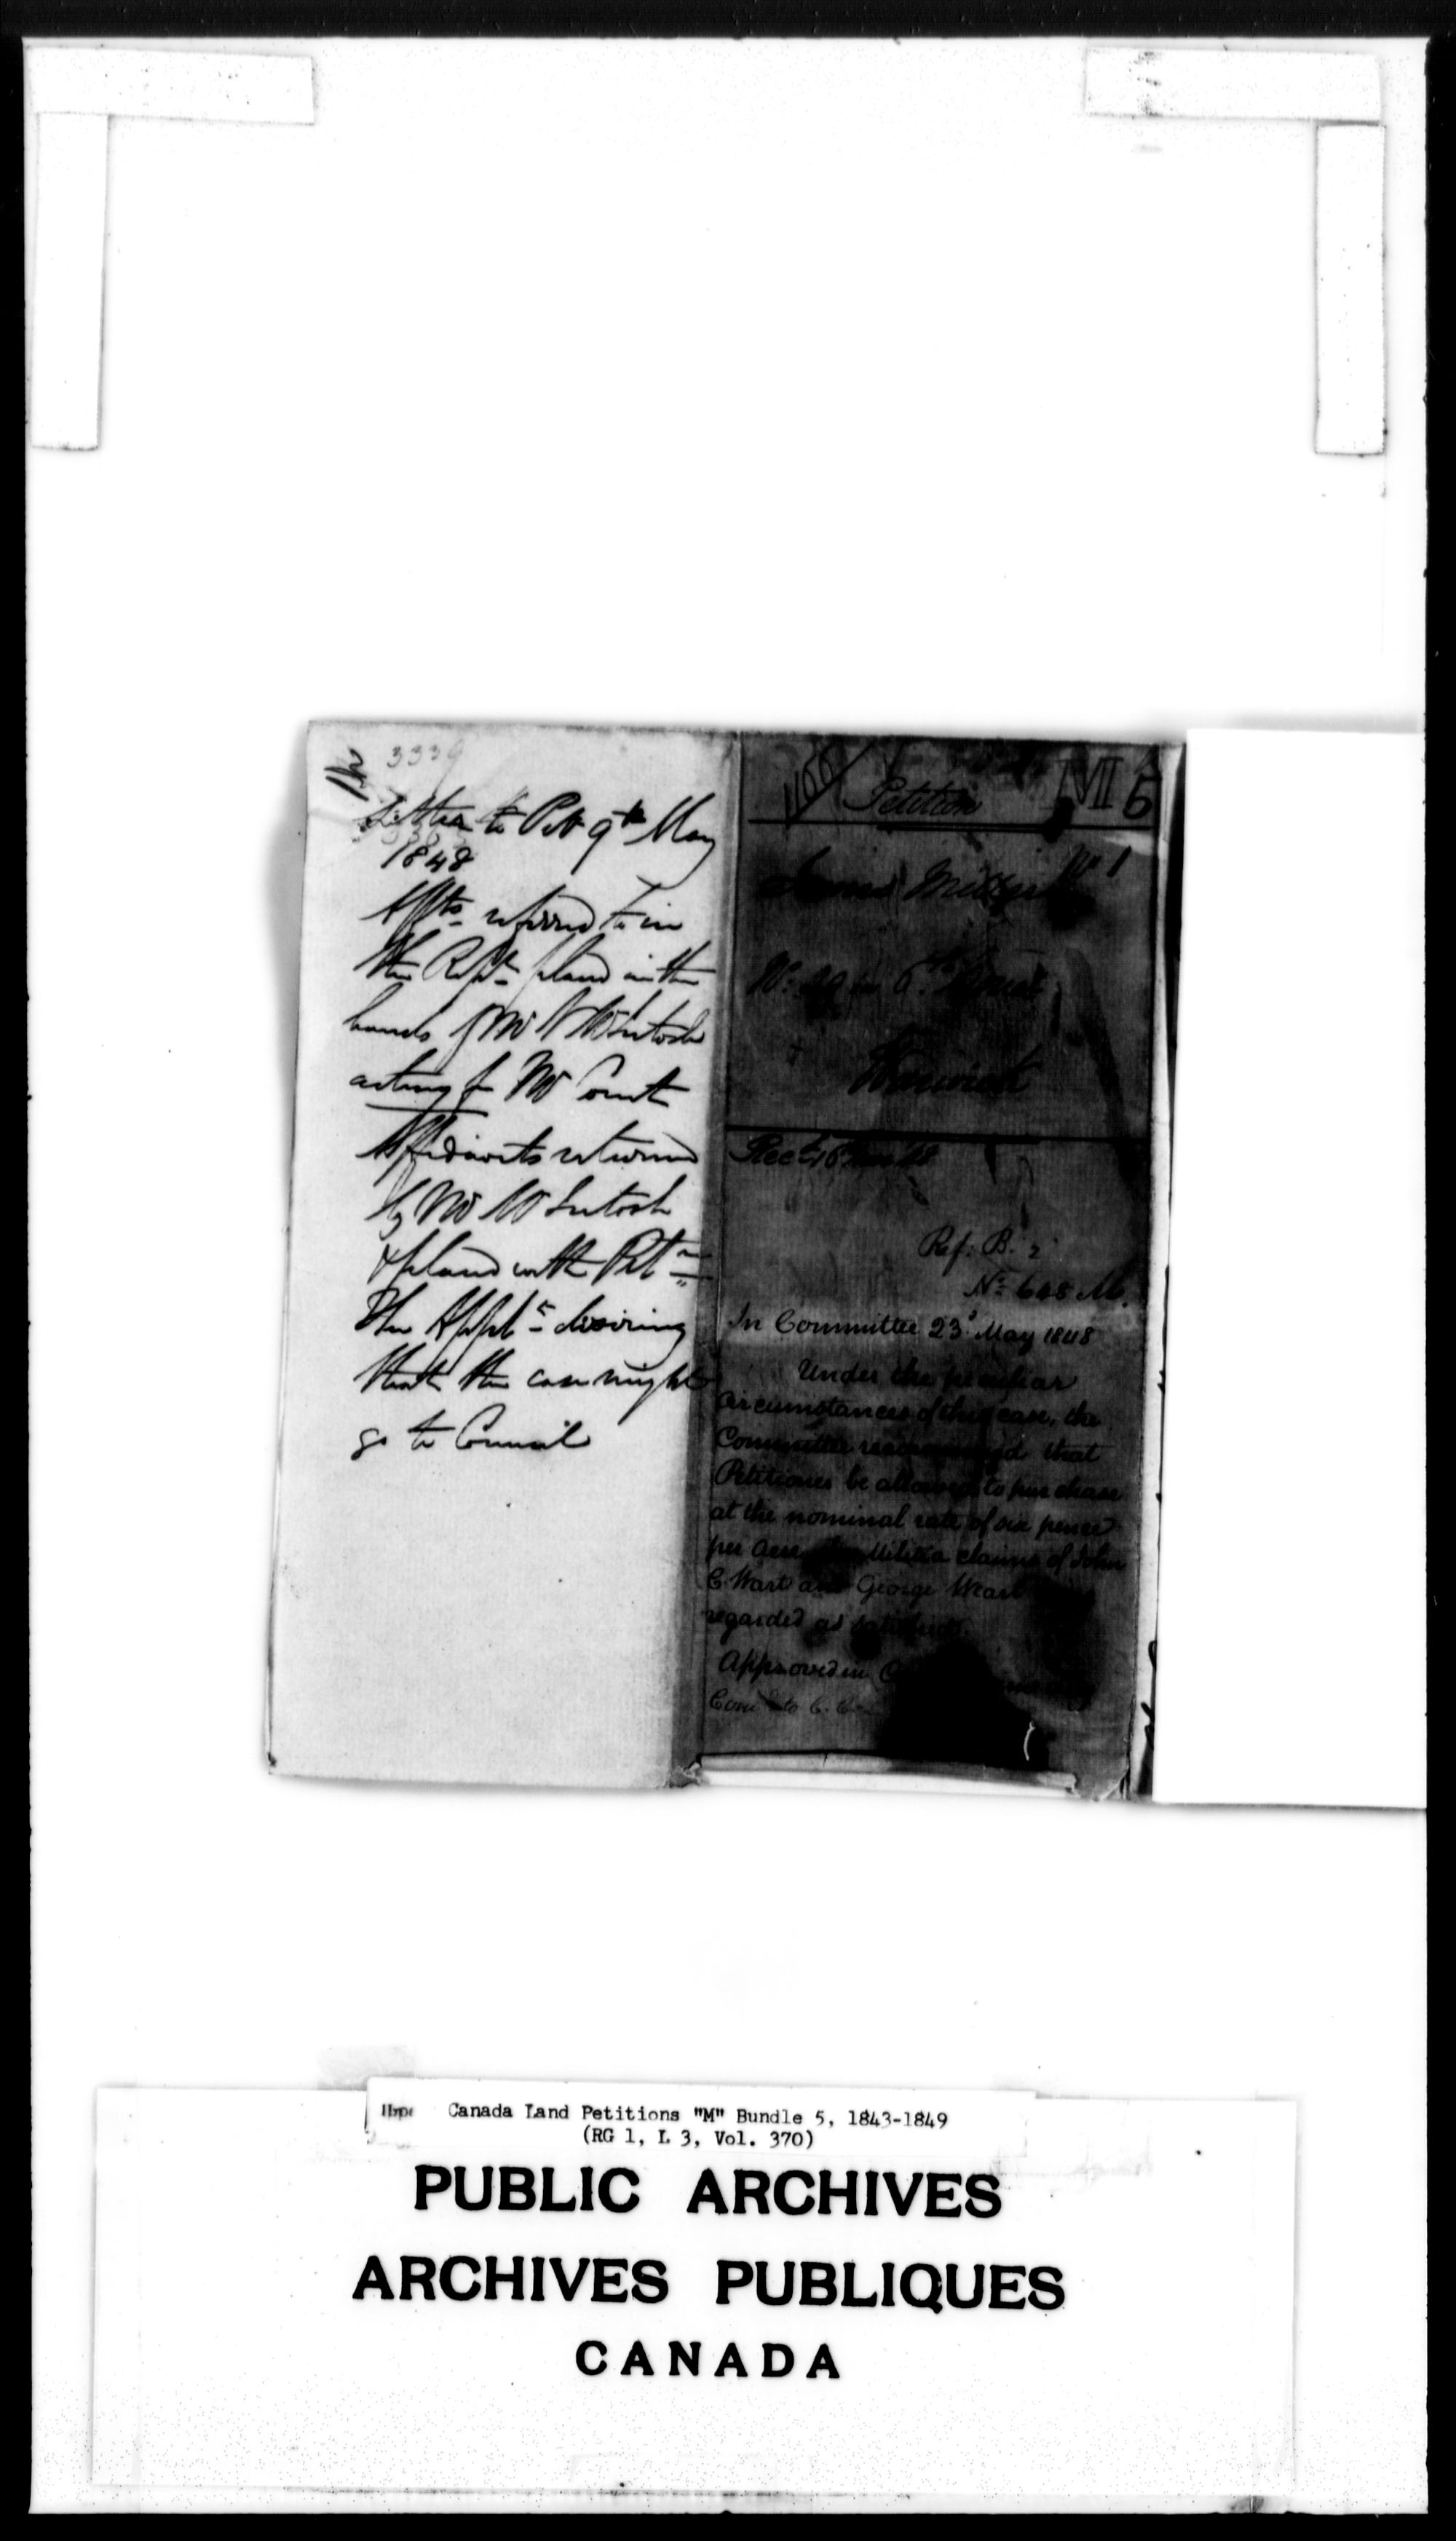 3339
Letter to Pet 9th May
1848
Affts referred to in
the Rept placed in the
hands of Mr McIntosh
acting for Mr Court
Affidavits returned
by Mr McIntosh
& placed with Petn
The Applt desiring
that the case might
go to Council
Petition
M 5
No 1
James
No: in 6th
Warwick
Recd
Ref: B. 2
No 648 M.
In Committee 23d May 1848
Under the peculiar
circumstances of this case, the
Committee recommend that
Petitioner be allowed to purchase
at the nominal rate of six pence
per acre Militia claims of John
C. Wart and George Wart
regarded as satisfied.
Approved in
to C. C.
Canada Land Petitions "M" Bundle 5, 1843-1849
(RG 1, L 3, Vol. 370)
PUBLIC ARCHIVES
ARCHIVES PUBLIQUES
CANADA